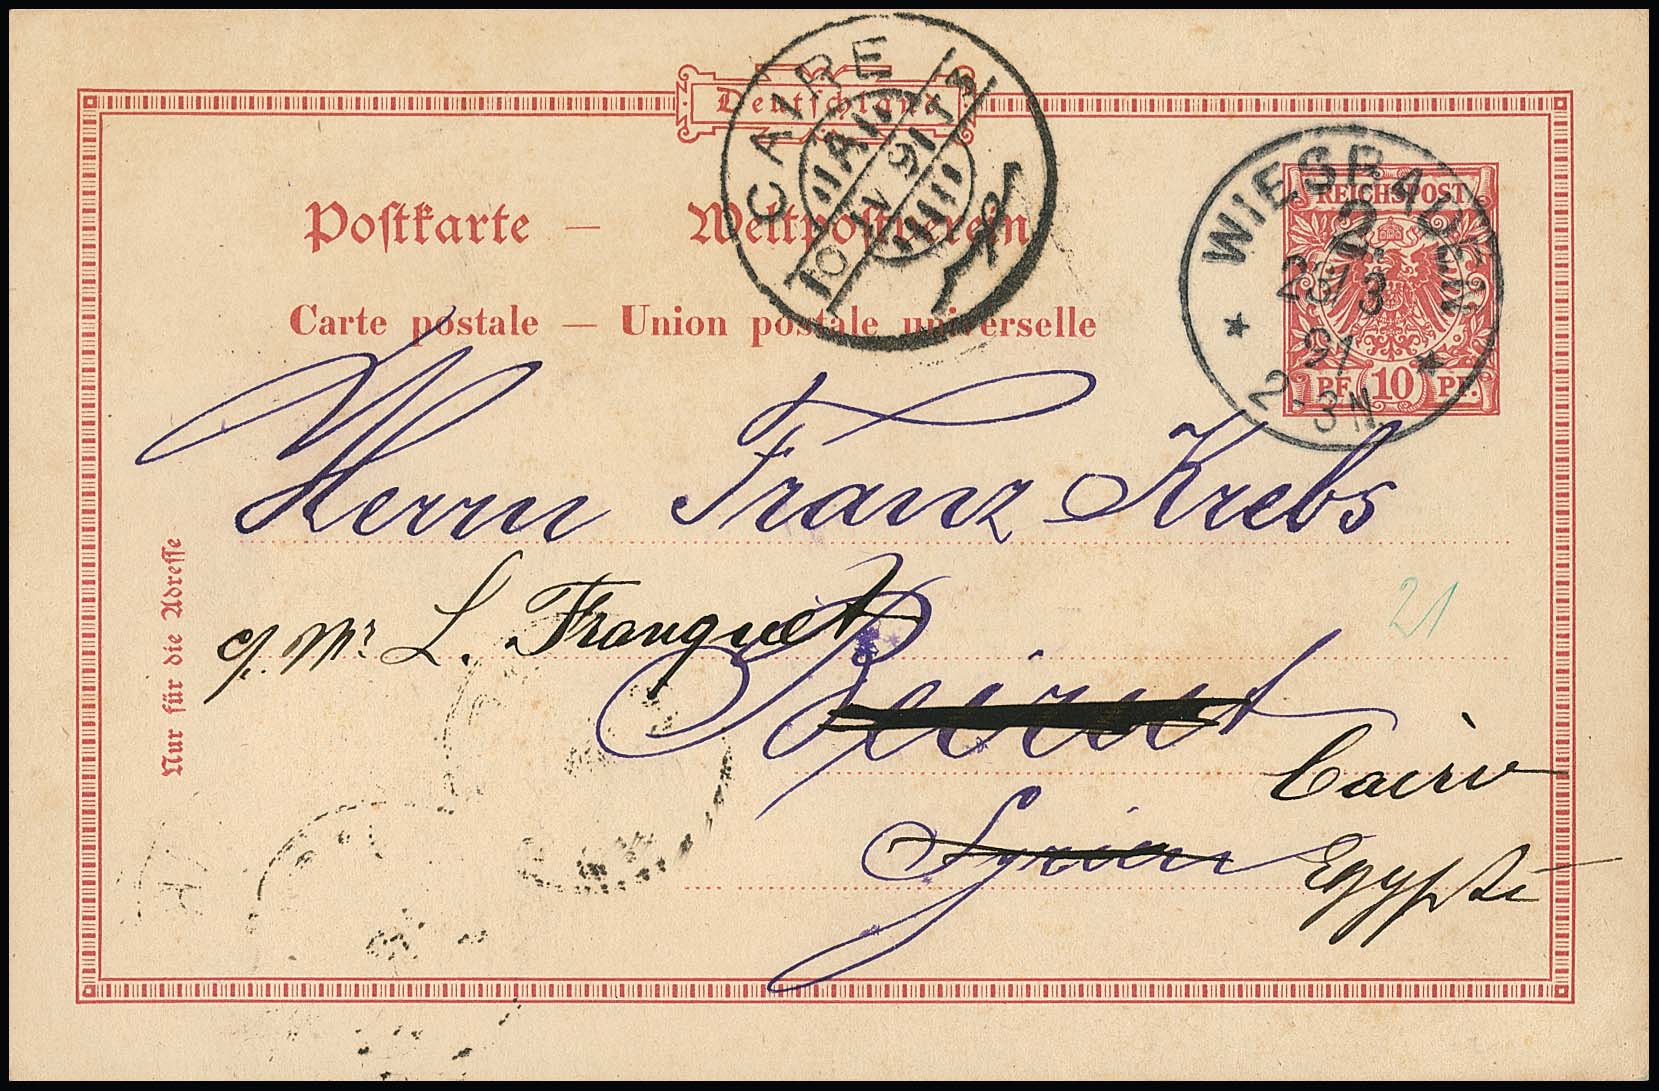 Deutschland
CAIRE
10 IV 91 T S
WIESBADEN
2.
28/3
91
2-3N.
REICHSPOST
PF. 10 PF.
Postkarte — Weltpostverein
Carte postale — Union postale universelle
Herrn Franz Krebs
c/. Mr. L. Franquet
Beirut
Cairo
Syrien
Egypte
21
Nur für die Adresse